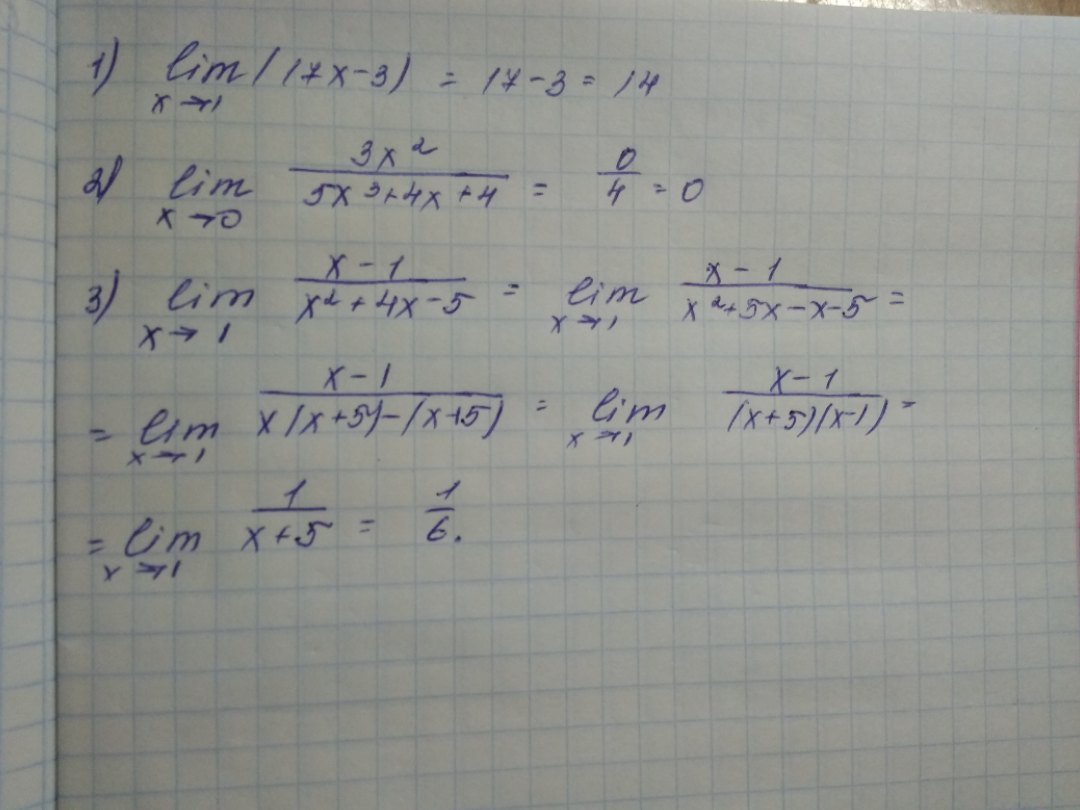 1) lim x→1 (17x-3) = 17-3 = 14
2) lim x→0 3x²/(5x³+4x+4) = 0/4 = 0
3) lim x→1 (x-1)/(x²+4x-5) = lim x→1 (x-1)/(x²+5x-x-5) =
= lim x→1 (x-1)/(x(x+5)-(x+5)) = lim x→1 (x-1)/((x+5)(x-1)) =
= lim x→1 1/(x+5) = 1/6.